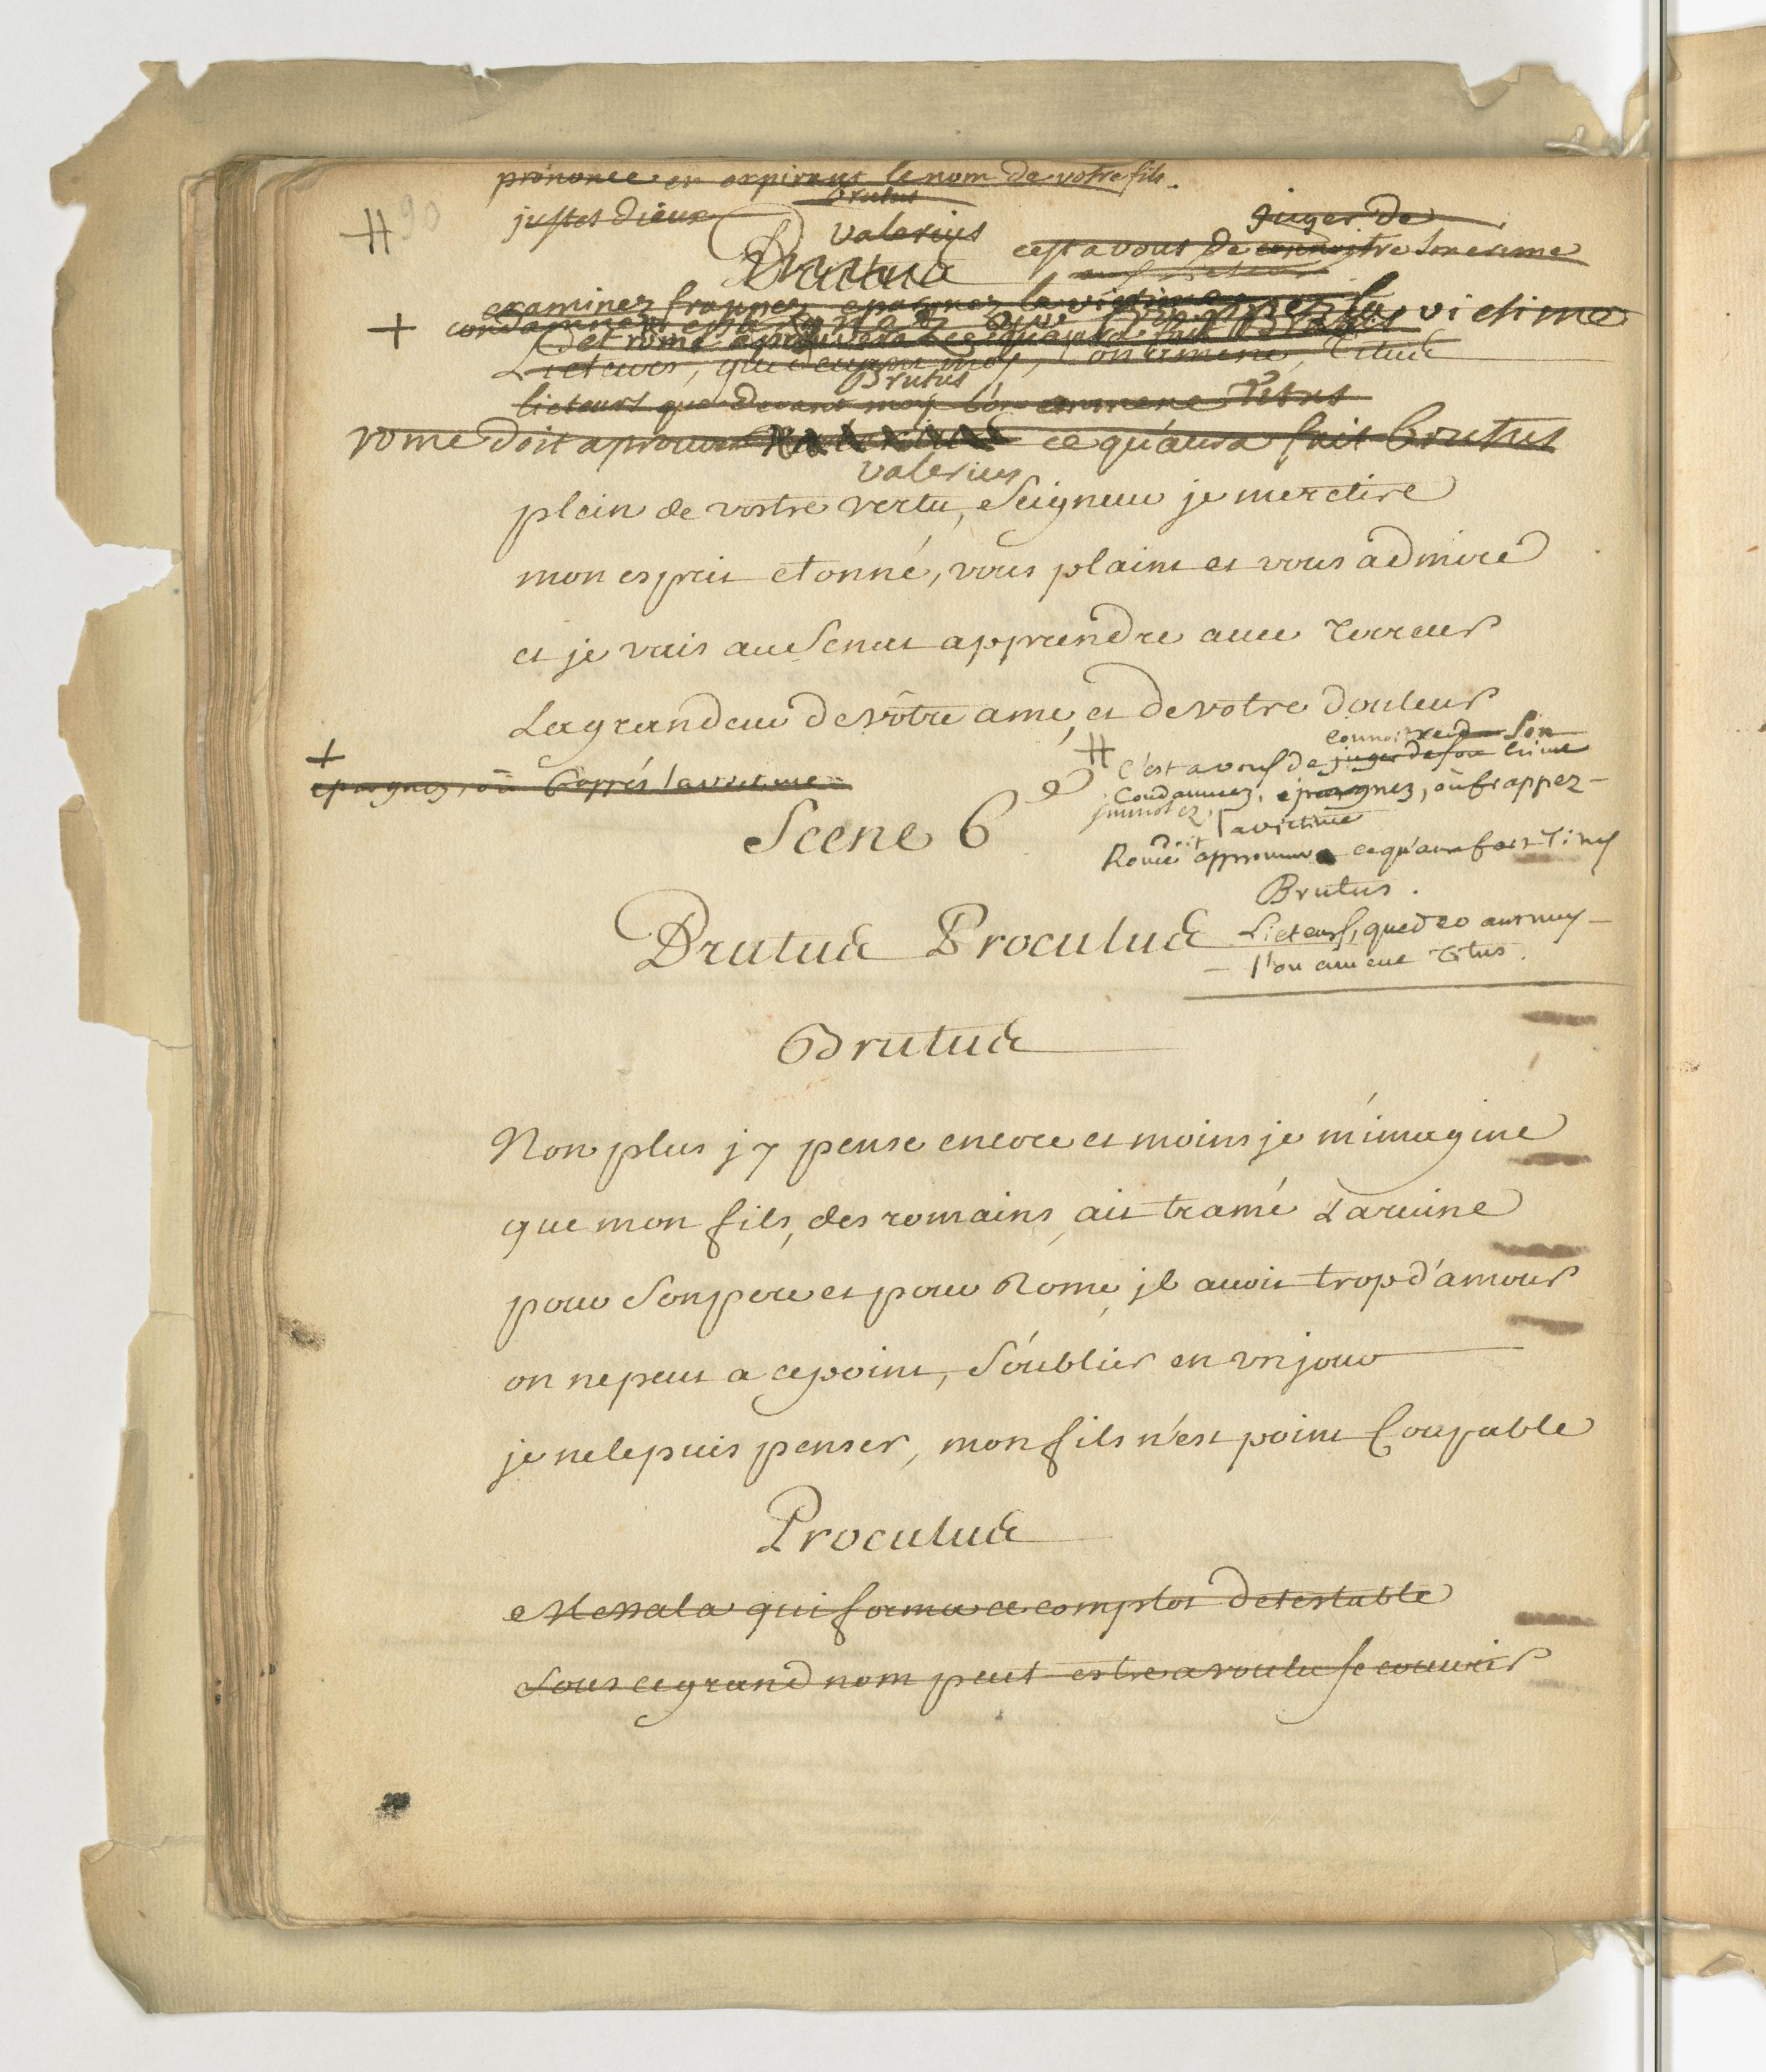 90
prononce en expirant le nom de votre fils.
Brutus
justes dieux
valerius
juger de
Brutus
c'est a vous de connoistre son crime
examinez frappez epargnez la victime
+ condamnez epargnez ou frappez la victime
et rome aprouvera ce qu'aura fait Brutus
Licteurs, que devant moy, l'on amene, Titus
Brutus
licteurs que devant moy l'on ammene Titus
rome doit aprouver ce qu'aura fait brutus
valerius
plein de vostre vertu, Seigneur je me retire
mon esprit etonné, vous plaint et vous admire
et je vais au Senat apprendre avec terreur
La grandeur de vôtre ame, et de votre douleur
connoitre son
C'est a vous de juger de son crime
+
epargnez, ou frappés la victime
Condamnez, epargnez, ou frappez
immolez, la victime
Scene 6e
doit
Rome approuver ce qu'aura fait Titus
Brutus.
Brutus Proculus
Licteurs, que devant moy
l'on amene Titus.
Brutus
Non plus j'y pense encore et moins je m'imagine
que mon fils, des romains, ait tramé La ruine
pour Son pere et pour Rome, jl avoit trop d'amour
on ne peut a ce point, S'oublier en vn jour
je ne le puis penser, mon fils n'est point Coupable
Proculus
Messala qui forma ce complot detestable
Sous ce grand nom peut estre a voulu se couvrir